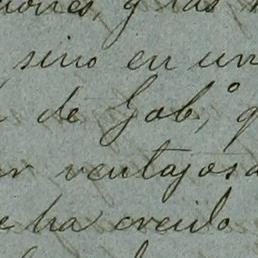 y las
sino en un
de Gob,º q
ventajosa
ha creido